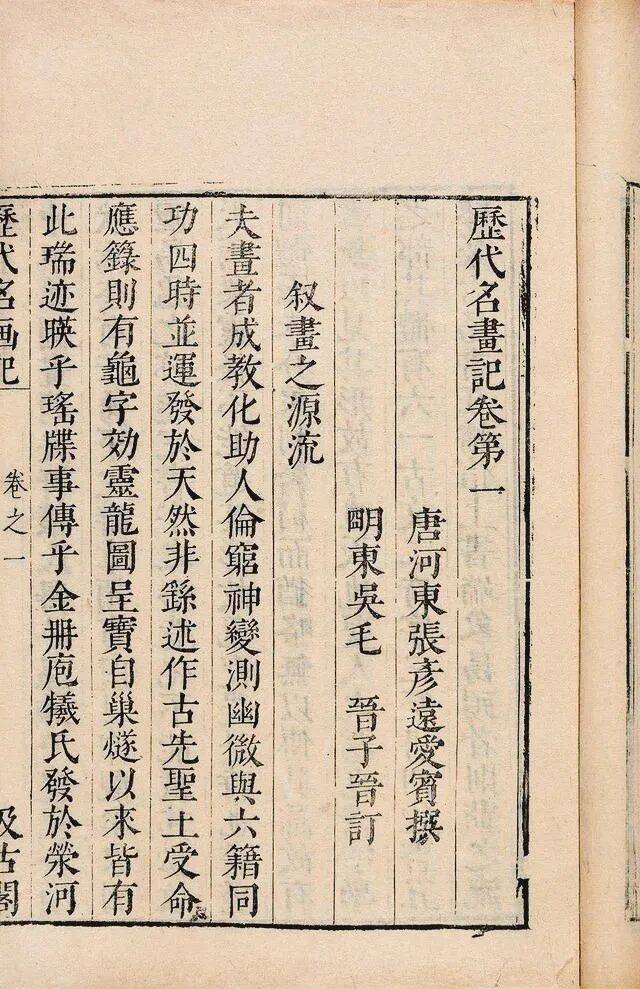 歷代名畫記卷第一
唐河東張彥遠愛賓撰
眀東吳毛 晉子晉訂
叙畫之源流
夫畫者成教化助人倫窮神變測幽微與六籍同
功四時並運發於天然非繇述作古先聖王受命
應籙則有龜字効靈龍圖呈寶自巢燧以來皆有
此瑞迹暎乎瑤牒事傳乎金冊庖犧氏發於滎河
歷代名画記 卷之一 汲古閣